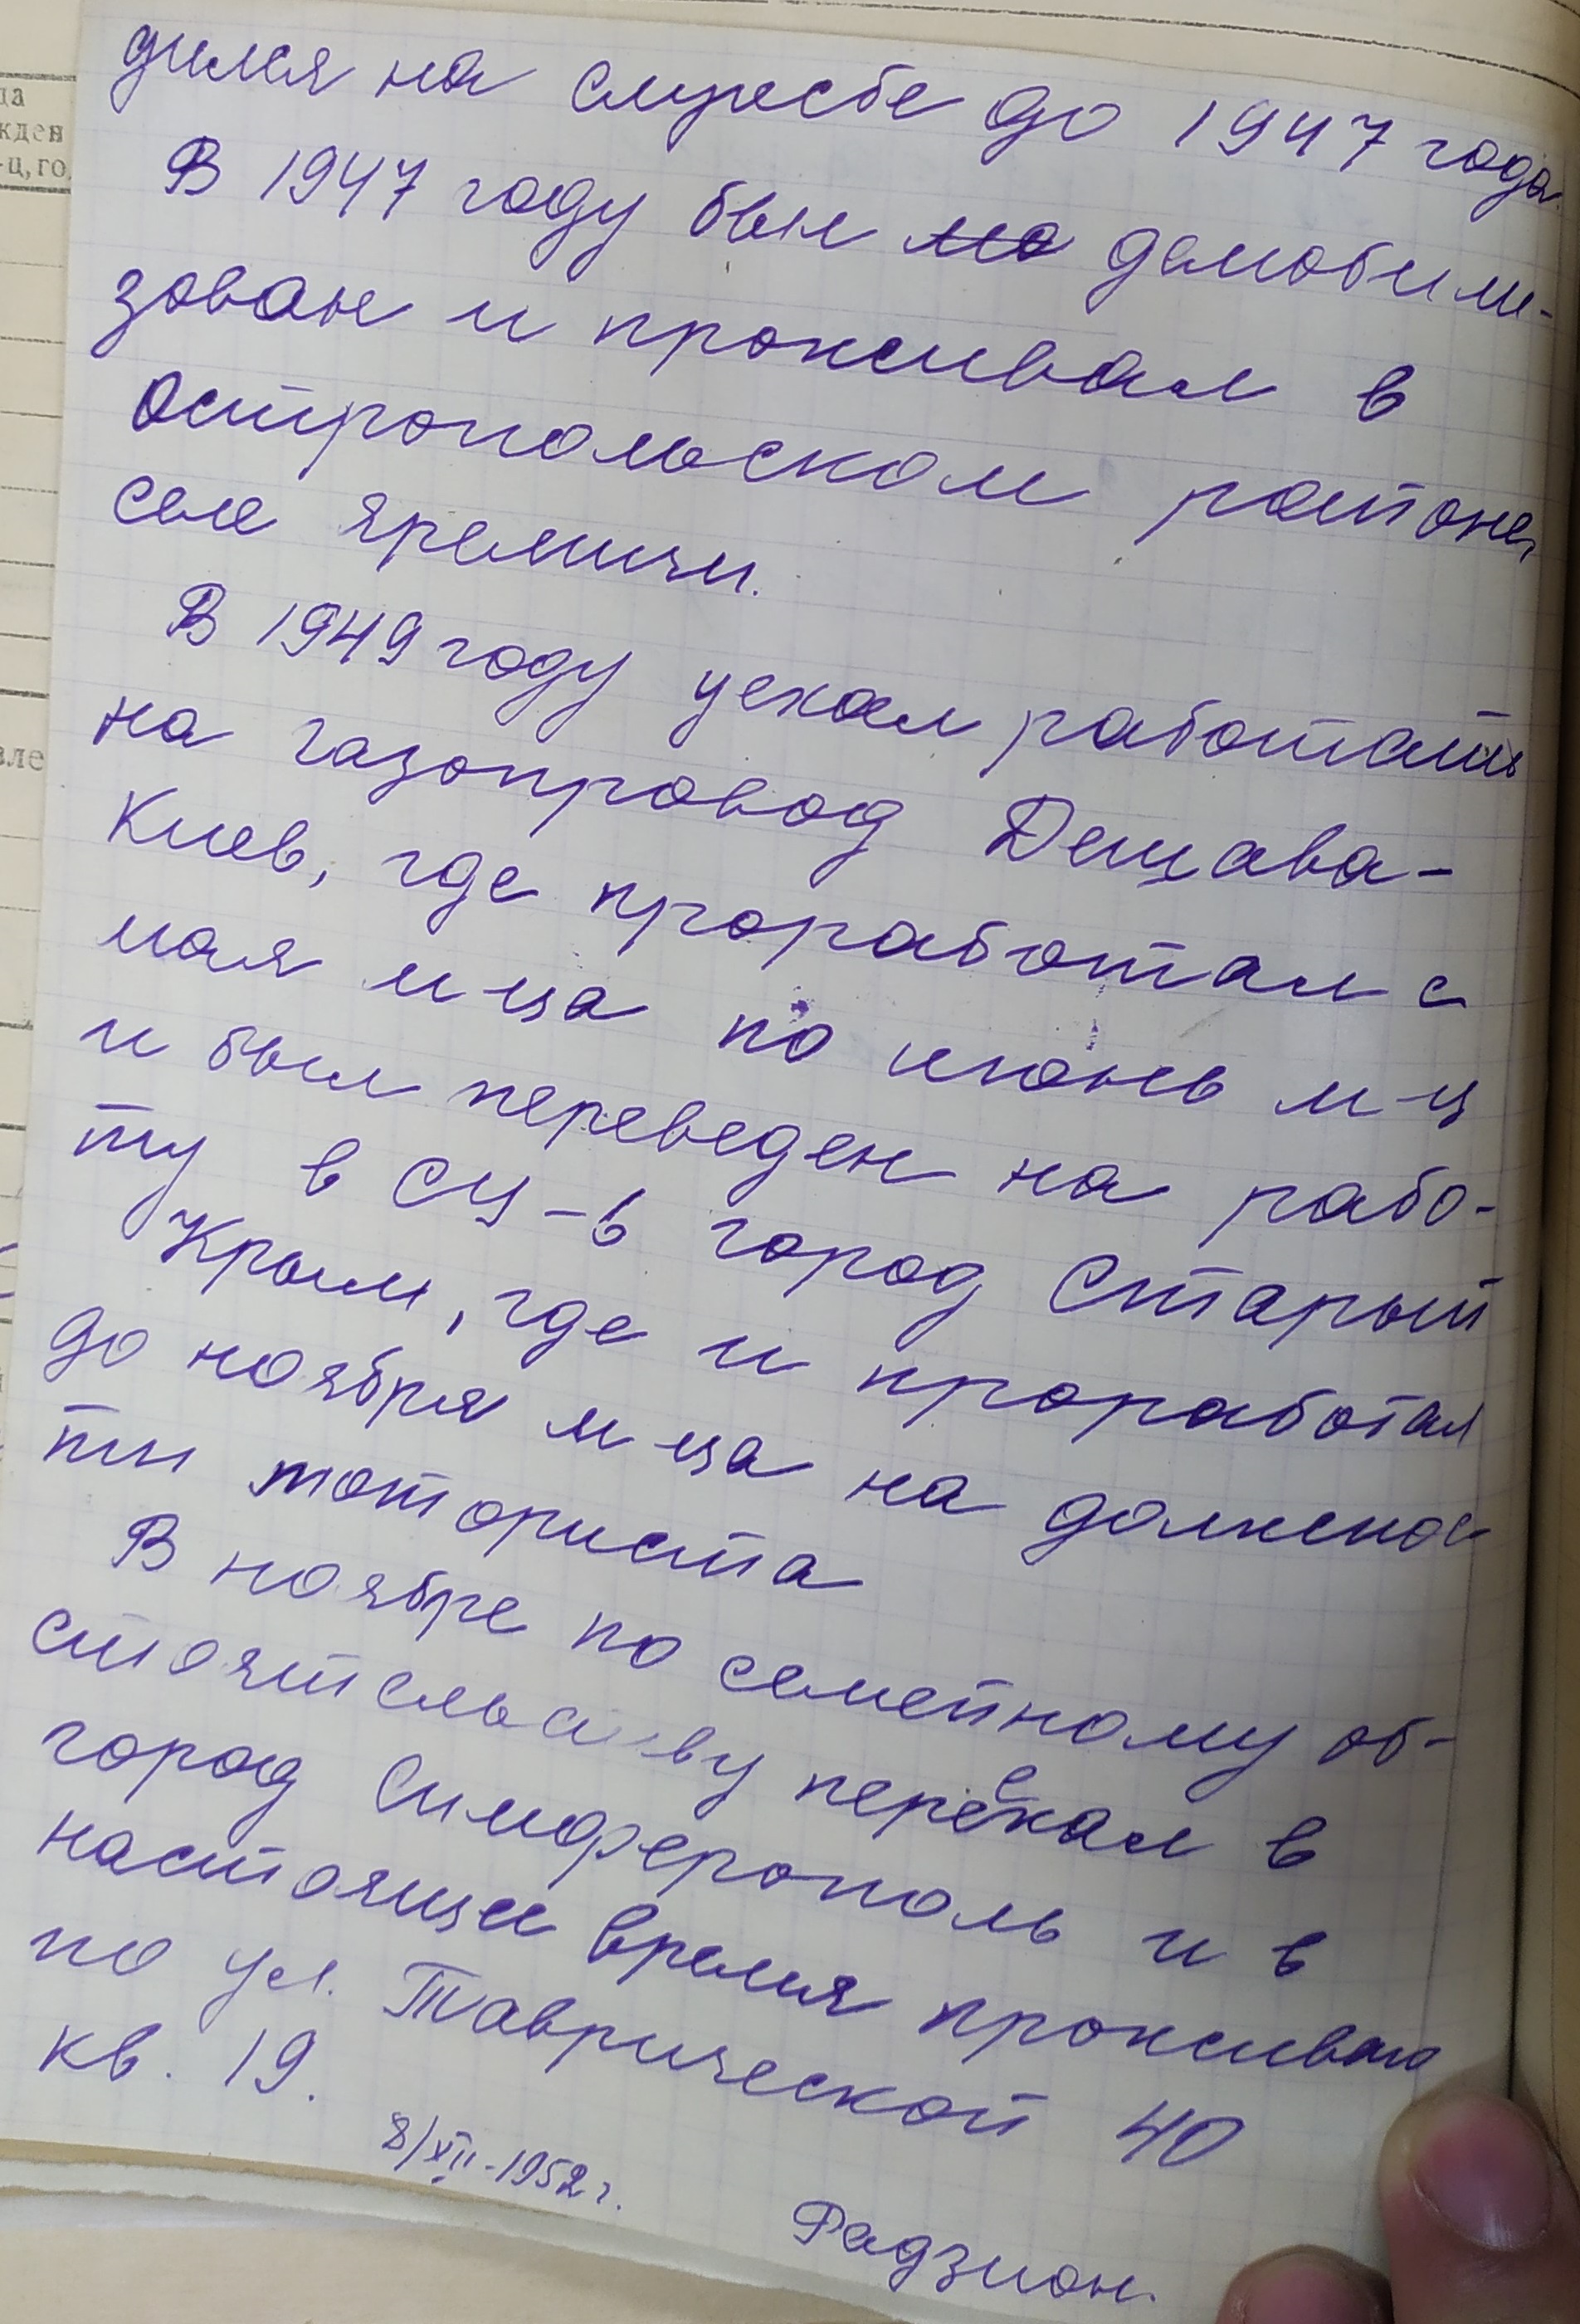 дился на службе до 1947 года.
В 1947 году был мо демобили-
зован и проживал в
Остропольском районе,
селе Яремичи.
В 1949 году уехал работать
на газопровод Дещава-
Киев, где проработал с
мая м-ца по июнь м-ц
и был переведен на рабо-
ту в СЦ-6 город Старый
Крым, где и проработал
до ноября м-ца на должнос-
ти моториста
В ноябре по семейному об-
стоятельству переехал в
город Симферополь и в
настоящее время проживаю
по ул. Таврической 40
кв. 19.
8/XII-1952 г.
Радзион.
да
жден
-ц, го
вле